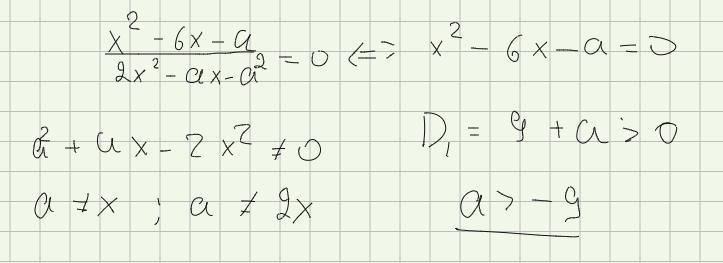 x² - 6x - a / 2x² - ax - a² = 0 <=> x² - 6x - a = 0
a² + ax - 2x² ≠ 0
D₁ = 9 + a > 0
a ≠ x ; a ≠ 2x
a > -9